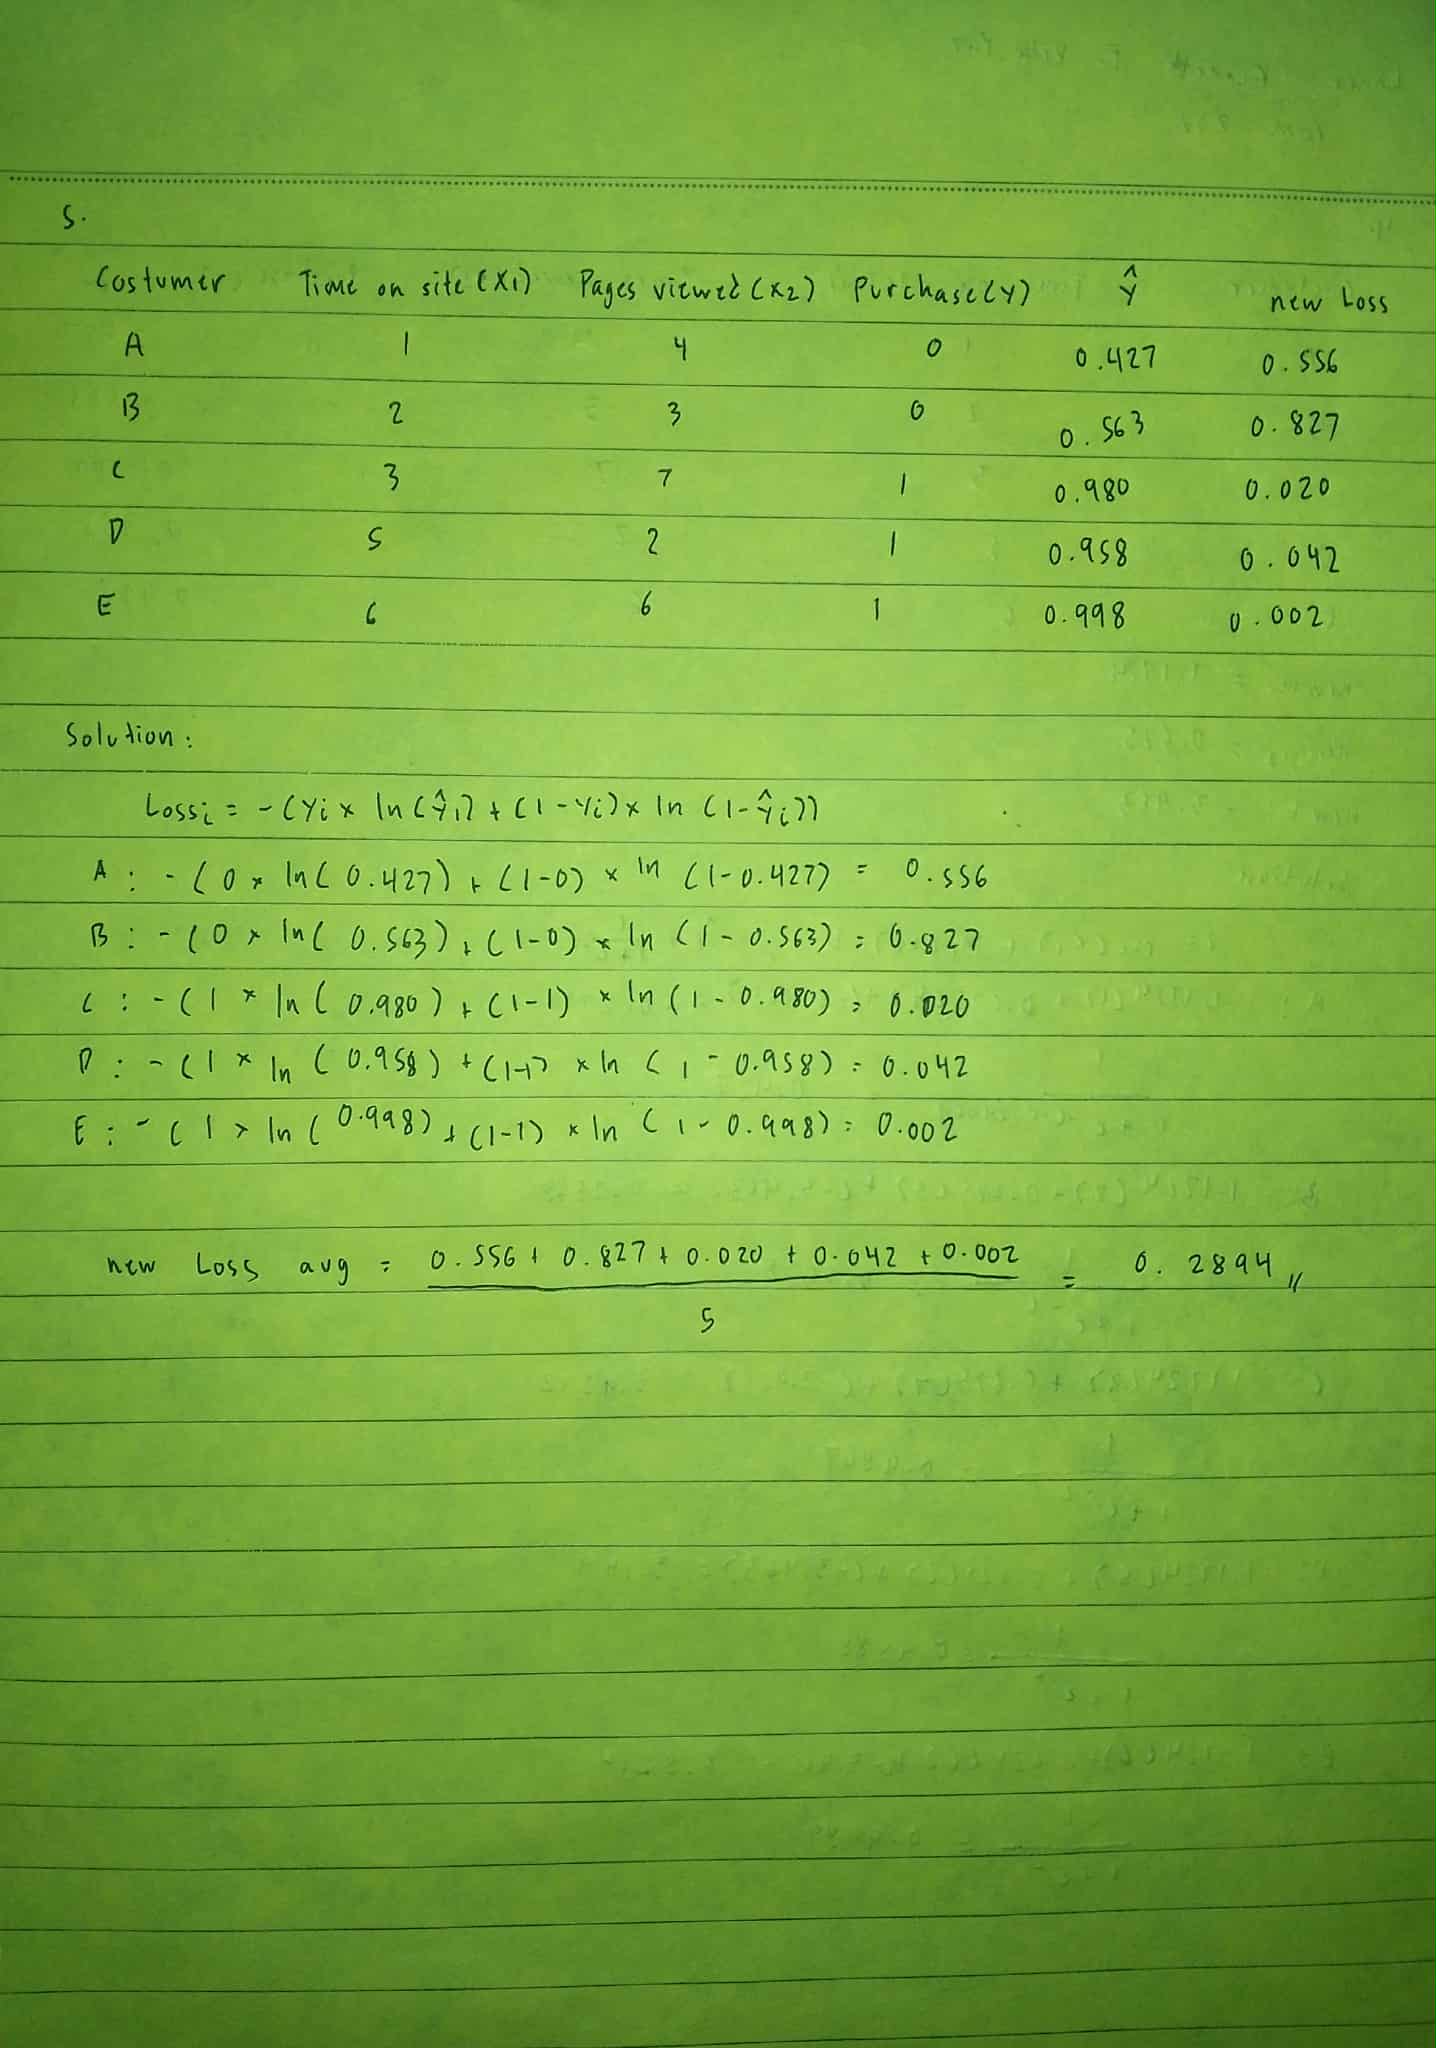 5.
Costumer Time on site (X1) Pages viewed (x2) Purchase (y) Ŷ new Loss
A 1 4 0 0.427 0.556
B 2 3 0 0.563 0.827
C 3 7 1 0.980 0.020
D 5 2 1 0.958 0.042
E 6 6 1 0.998 0.002
Solution:
Lossi = -(Yi x ln(Ŷi) + (1-Yi) x ln (1-Ŷi))
A : -(0 x ln(0.427) + (1-0) x ln (1-0.427) = 0.556
B : -(0 x ln(0.563) + (1-0) x ln (1-0.563) = 0.827
C : -(1 x ln(0.980) + (1-1) x ln (1-0.980) = 0.020
D : -(1 x ln (0.958) + (1-1) x ln (1-0.958) = 0.042
E : -(1 x ln (0.998) + (1-1) x ln (1-0.998) = 0.002
new Loss avg = 0.556 + 0.827 + 0.020 + 0.042 + 0.002 = 0.2894
5